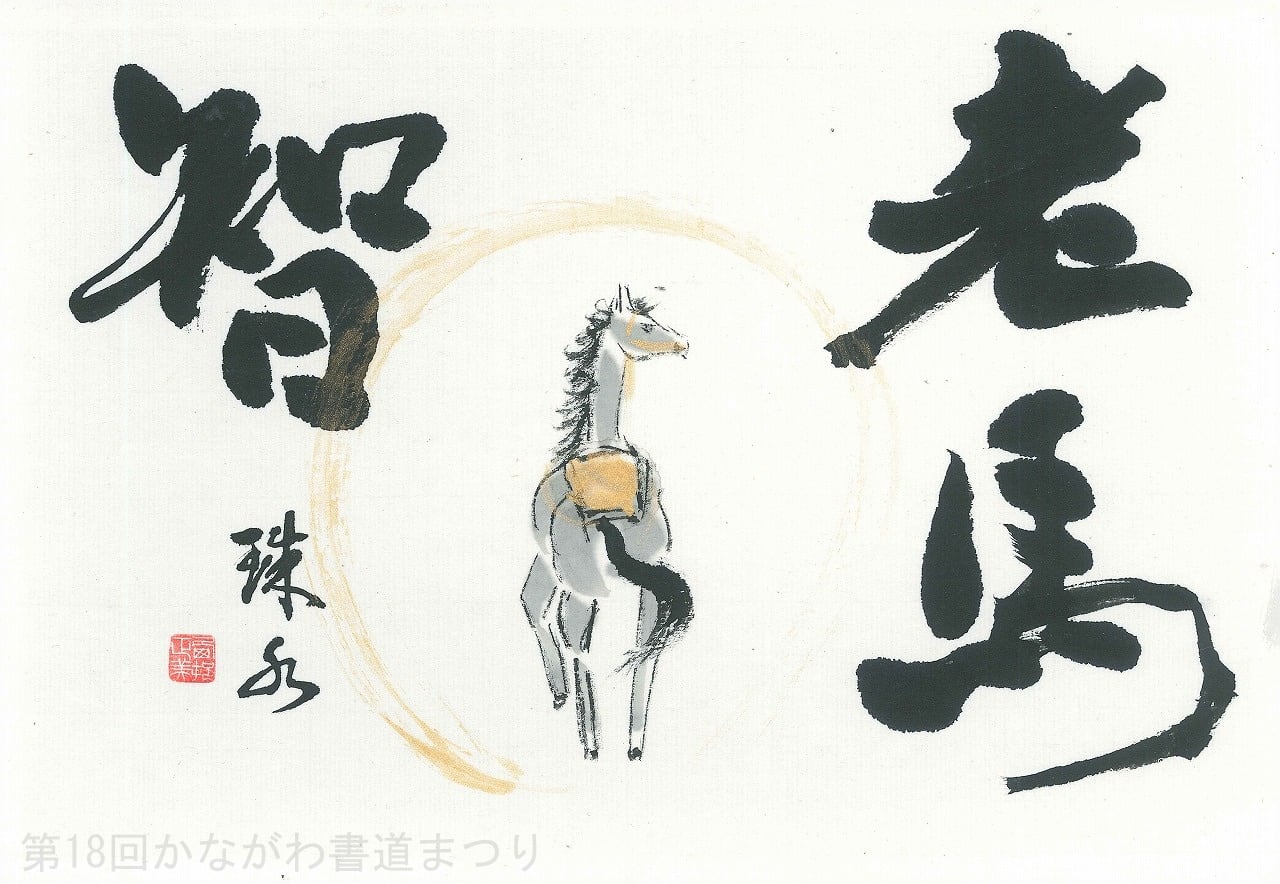 老馬
智
珠水
第18回かながわ書道まつり